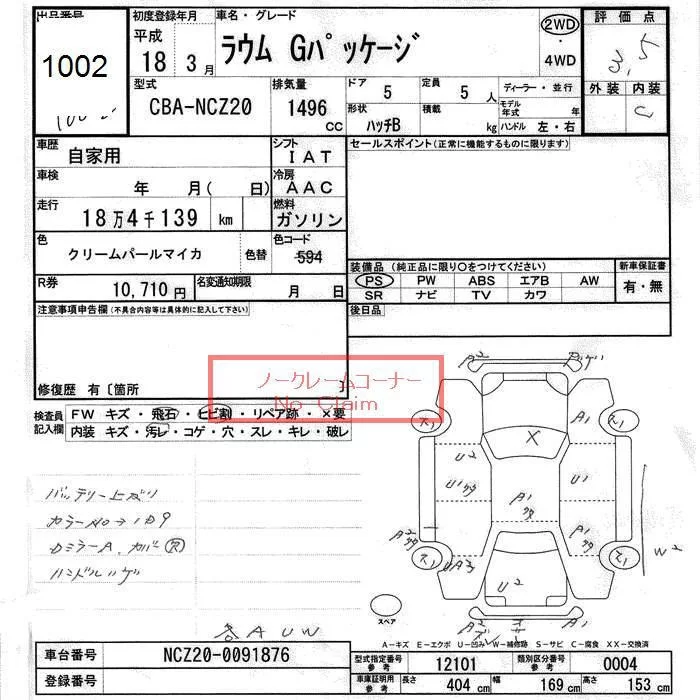 出品番号 初度登録年月 車名・グレード 2WD 評価点
1002 平成 18 3月 ラウム Gパッケージ ・ 3.5
4WD
型式 排気量 ドア 5 定員 5人 ディーラー・並行 外装 内装
CBA-NCZ20 1496 cc 形状 ハッチB 積載 kg モデル年式 年 C
ハンドル 左・右
車歴 自家用 シフト IAT セールスポイント(正常に機能するものに限ります)
車検 年 月( 日) 冷房 AAC
走行 18万4千139 km 燃料 ガソリン
色 クリームパールマイカ 色替 色コード 594
装備品(純正品に限り○をつけてください) 新車保証書
R券 10,710円 名変通知期限 月 日 PS PW ABS エアB AW 有・無
SR ナビ TV カワ
注意事項申告欄(不具合内容等は具体的に記入して下さい) 後日品
ノークレームコーナー
No Claim
修復歴 有〔箇所 〕
検査員 FW キズ・飛石・ヒビ割・リペア跡・×要
記入欄 内装 キズ・汚レ・コゲ・穴・スレ・キレ・破レ
バッテリー上ガリ
カラーNo→1D9
ロミラーA、カバー欠
ハンドルハゲ
各AUW
A2 ハゲ
ス1 A1 ス1
X
U2
U1 クタ U1
A1 クタ
A2 クタ A1 クタ
ス1 UA3 ス1 W2
U2
A2
スペア
A-キズ E-エクボ U-凹み W-補修跡 S-サビ C-腐食 XX-交換済
車台番号 NCZ20-0091876 型式指定番号 参考 12101 類別区分番号 参考 0004
登録番号 車庫証明用 参考 長さ 404 cm 幅 169 cm 高さ 153 cm